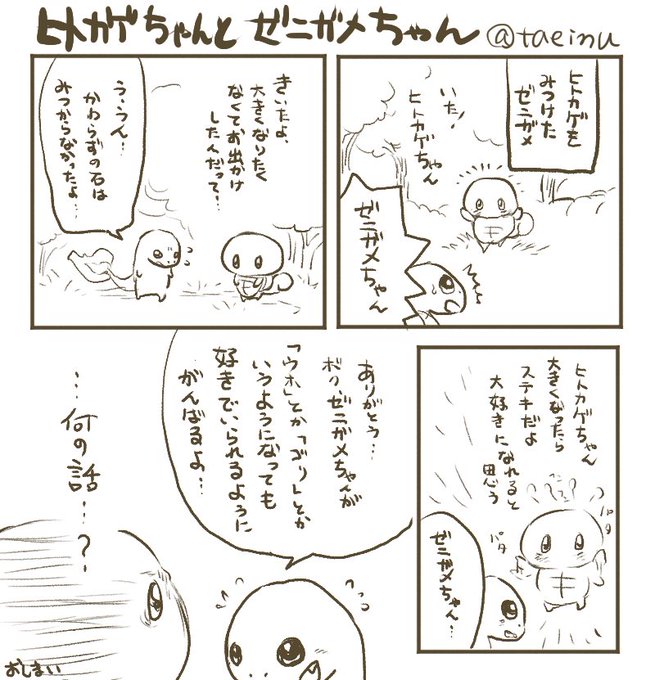 ヒトカゲちゃんと ゼニガメちゃん @taeinu
ヒトカゲを
みつけた
ゼニガメ
いた!
ヒトカゲちゃん
ゼニガメちゃん
きいたよ、
大きくなりたく
なくてお出かけ
したんだって!
う・うん…
かわらずの石は
みつからなかったよ…
ヒトカゲちゃん
大きくなったら
ステキだよ
大好きになれると
思う
パタ
パタ
ゼニガメちゃん…
ありがとう…
ボク、ゼニガメちゃんが
「ウホ」とか「ゴリ」とか
いうようになっても
好きでいられるように
がんばるよ…
…何の話…?
おしまい